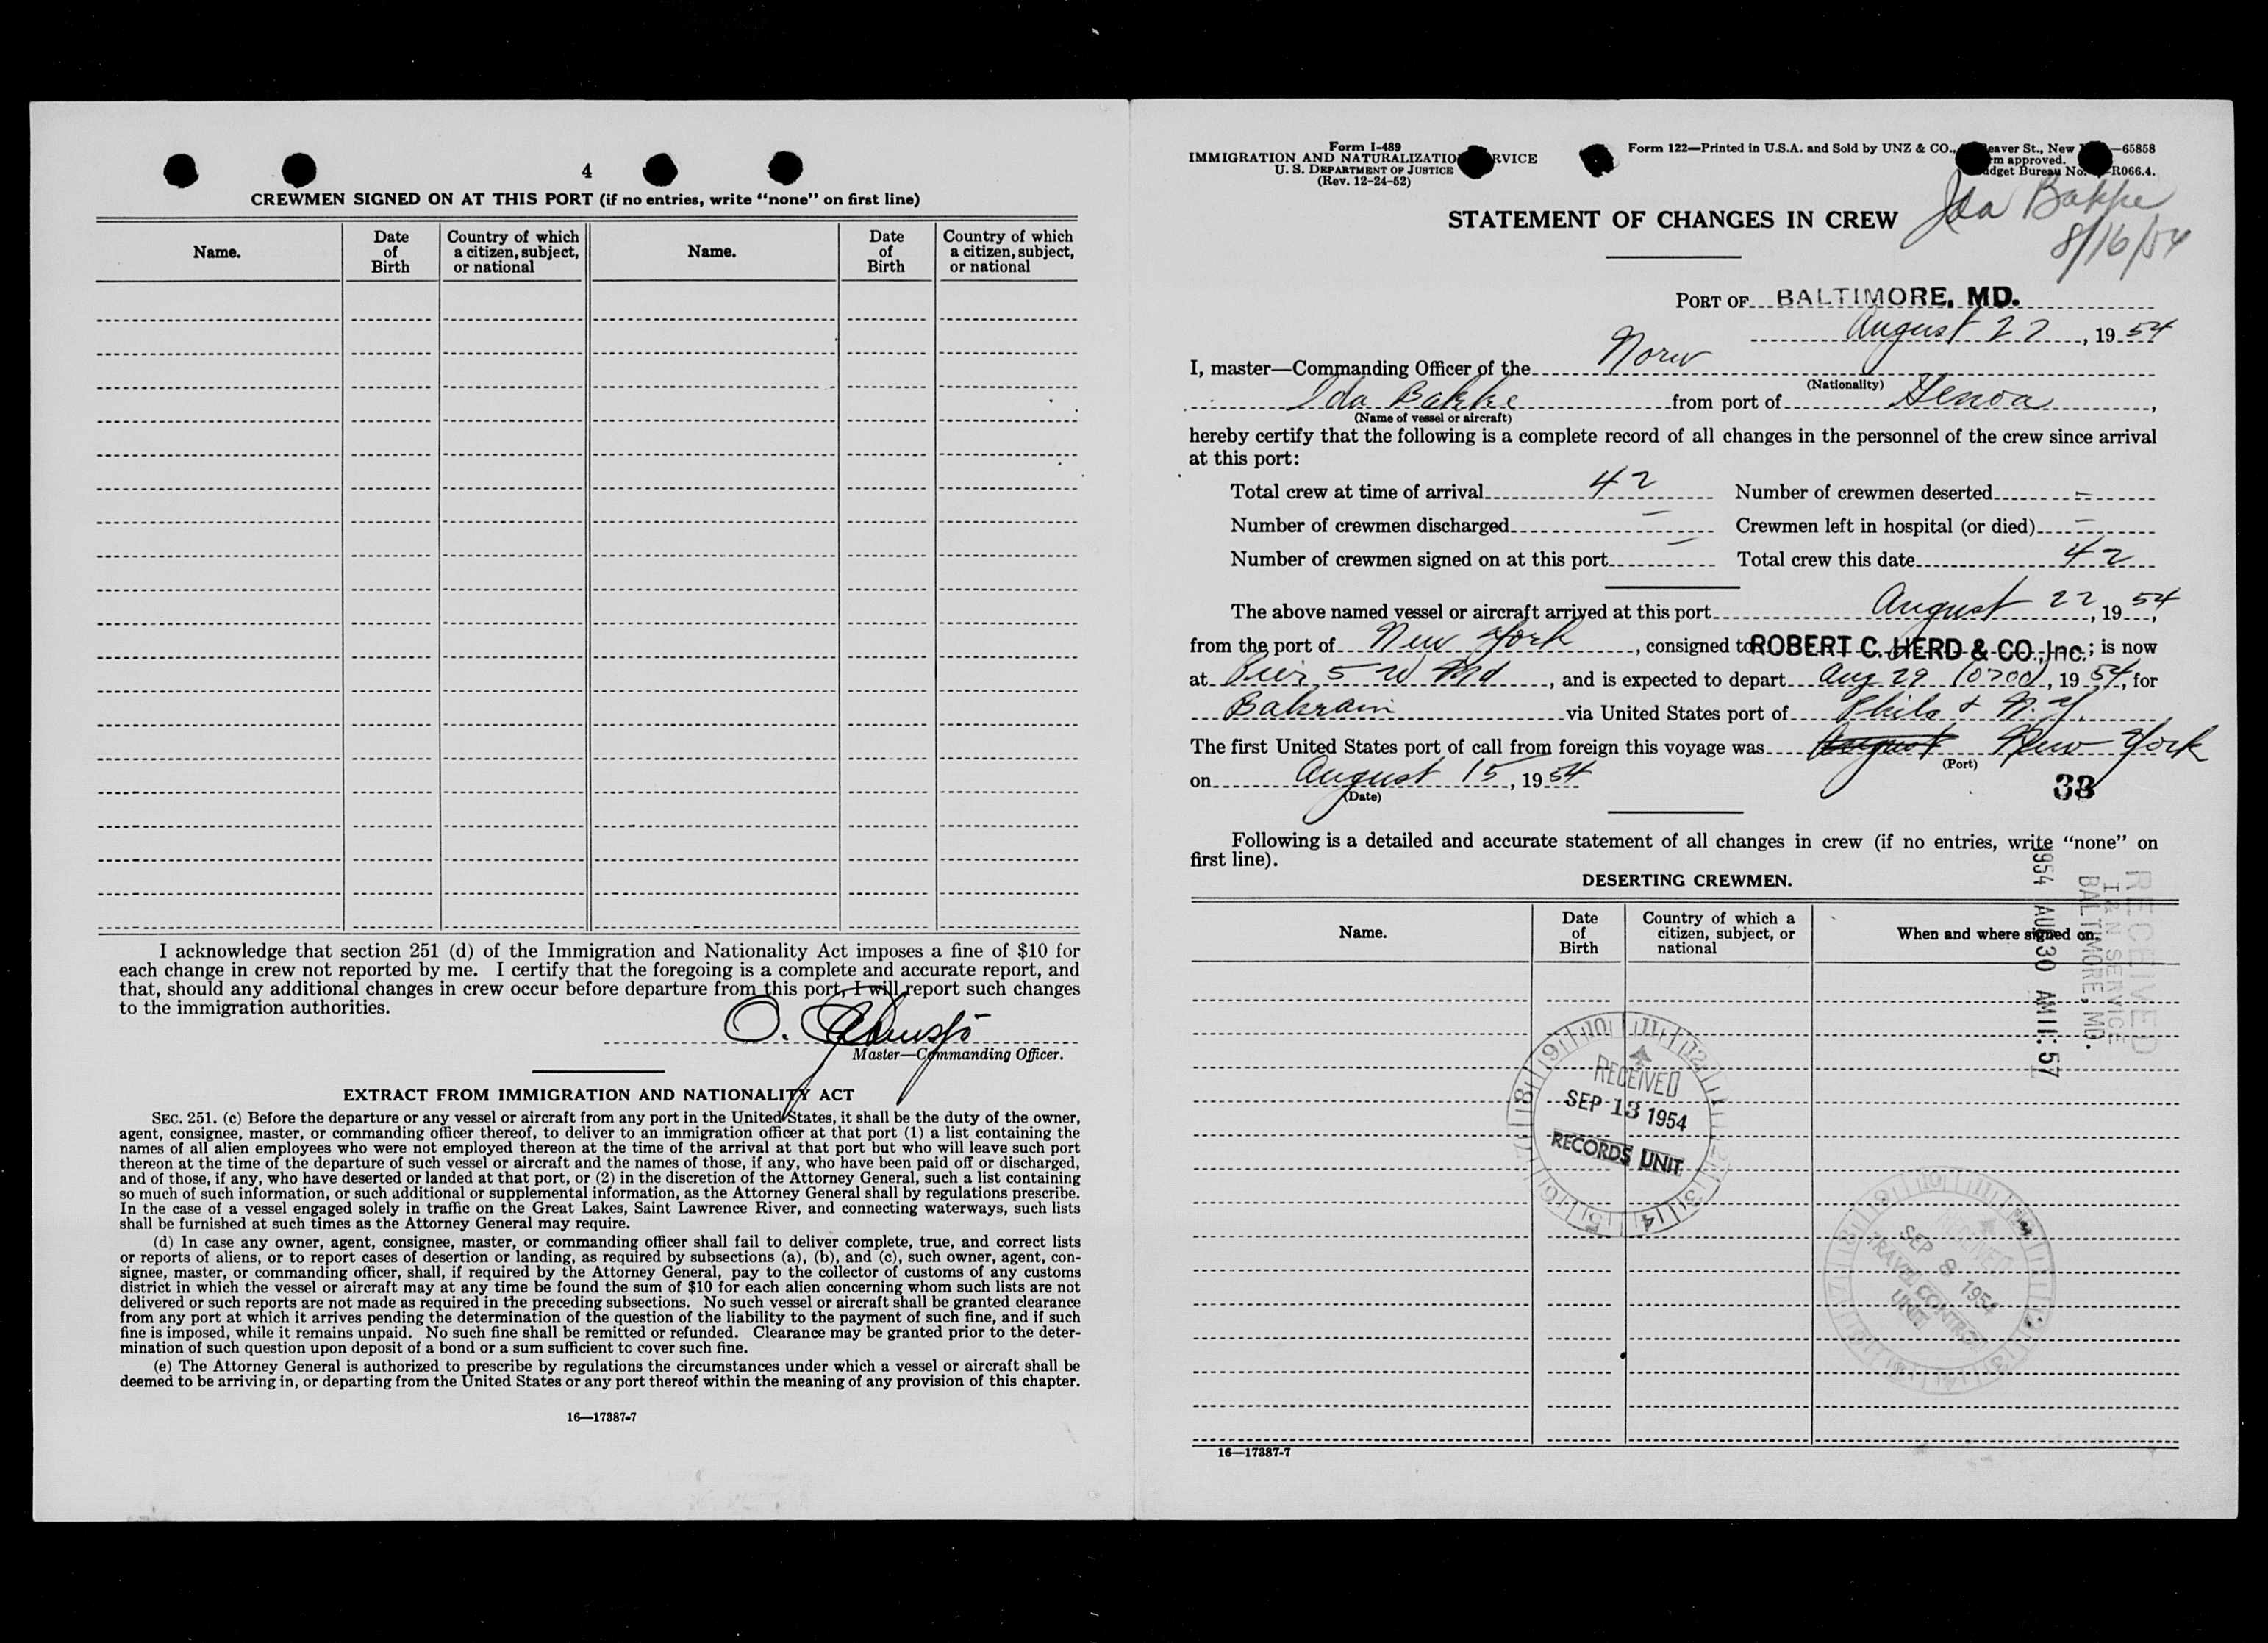 4
CREWMEN SIGNED ON AT THIS PORT (if no entries, write “none” on first line)
Name. Date of Birth Country of which a citizen, subject, or national Name. Date of Birth Country of which a citizen, subject, or national
I acknowledge that section 251 (d) of the Immigration and Nationality Act imposes a fine of $10 for
each change in crew not reported by me. I certify that the foregoing is a complete and accurate report, and
that, should any additional changes in crew occur before departure from this port, I will report such changes
to the immigration authorities.
O.
Master—Commanding Officer.
EXTRACT FROM IMMIGRATION AND NATIONALITY ACT
SEC. 251. (c) Before the departure or any vessel or aircraft from any port in the United States, it shall be the duty of the owner,
agent, consignee, master, or commanding officer thereof, to deliver to an immigration officer at that port (1) a list containing the
names of all alien employees who were not employed thereon at the time of the arrival at that port but who will leave such port
thereon at the time of the departure of such vessel or aircraft and the names of those, if any, who have been paid off or discharged,
and of those, if any, who have deserted or landed at that port, or (2) in the discretion of the Attorney General, such a list containing
so much of such information, or such additional or supplemental information, as the Attorney General shall by regulations prescribe.
In the case of a vessel engaged solely in traffic on the Great Lakes, Saint Lawrence River, and connecting waterways, such lists
shall be furnished at such times as the Attorney General may require.
(d) In case any owner, agent, consignee, master, or commanding officer shall fail to deliver complete, true, and correct lists
or reports of aliens, or to report cases of desertion or landing, as required by subsections (a), (b), and (c), such owner, agent, con-
signee, master, or commanding officer, shall, if required by the Attorney General, pay to the collector of customs of any customs
district in which the vessel or aircraft may at any time be found the sum of $10 for each alien concerning whom such lists are not
delivered or such reports are not made as required in the preceding subsections. No such vessel or aircraft shall be granted clearance
from any port at which it arrives pending the determination of the question of the liability to the payment of such fine, and if such
fine is imposed, while it remains unpaid. No such fine shall be remitted or refunded. Clearance may be granted prior to the deter-
mination of such question upon deposit of a bond or a sum sufficient to cover such fine.
(e) The Attorney General is authorized to prescribe by regulations the circumstances under which a vessel or aircraft shall be
deemed to be arriving in, or departing from the United States or any port thereof within the meaning of any provision of this chapter.
16—17387-7
Form I-489
IMMIGRATION AND NATURALIZATIO RVICE
U. S. DEPARTMENT OF JUSTICE
(Rev. 12-24-52)
Form 122—Printed in U.S.A. and Sold by UNZ & CO., eaver St., New —65858
m approved.
dget Bureau No. R066.4.
Ida Bakke
8/16/54
STATEMENT OF CHANGES IN CREW
PORT OF BALTIMORE, MD.
August 27, 1954
I, master—Commanding Officer of the Norw
(Nationality)
Ida Bakke from port of Genoa,
(Name of vessel or aircraft)
hereby certify that the following is a complete record of all changes in the personnel of the crew since arrival
at this port:
Total crew at time of arrival 42 Number of crewmen deserted –
Number of crewmen discharged – Crewmen left in hospital (or died) –
Number of crewmen signed on at this port – Total crew this date 42
The above named vessel or aircraft arrived at this port August 22, 1954,
from the port of New York, consigned to ROBERT C. HERD & CO., Inc.; is now
at Pier 5 W Md, and is expected to depart Aug 29 (0700), 1954, for
Bahrain via United States port of Phila & N.Y.
The first United States port of call from foreign this voyage was August New York
(Port)
on August 15, 1954
(Date)
33
Following is a detailed and accurate statement of all changes in crew (if no entries, write “none” on
first line).
DESERTING CREWMEN.
Name. Date of Birth Country of which a citizen, subject, or national When and where signed on.
RECEIVED
I & N SERVICE
BALTIMORE, MD.
1954 AUG 30 AM 11:57
RECEIVED
SEP 13 1954
RECORDS UNIT
RECEIVED
SEP 8 1954
TRAVEL CONTROL
UNIT
16—17387-7